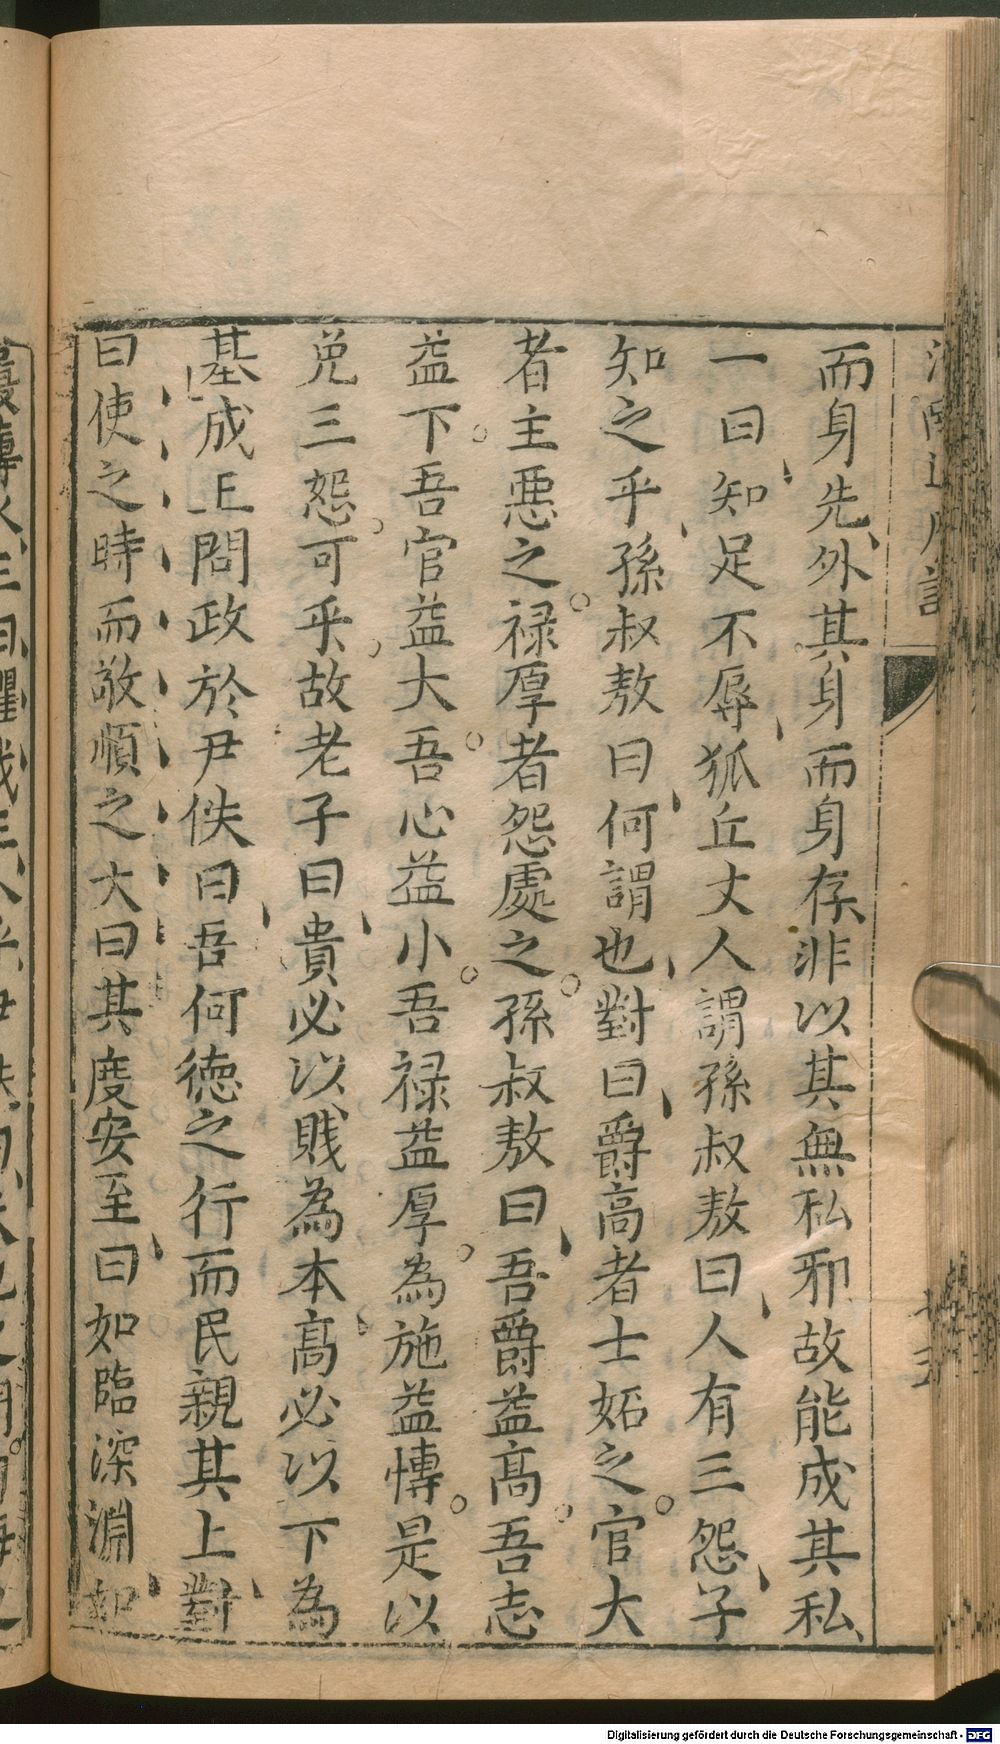 而身先外其身而身存非以其無私邪故能成其私
一曰知足不辱狐丘丈人謂孫叔敖曰人有三怨子
知之乎孫叔敖曰何謂也對曰爵高者士妬之官大
者主惡之禄厚者怨處之孫叔敖曰吾爵益高吾志
益下吾官益大吾心益小吾禄益厚為施益博是以
免三怨可乎故老子曰貴必以賤為本高必以下為
基成王問政於尹佚曰吾何德之行而民親其上對
曰使之時而敬順之大曰其度安至曰如臨深淵如
Digitalisierung gefördert durch die Deutsche Forschungsgemeinschaft - DFG